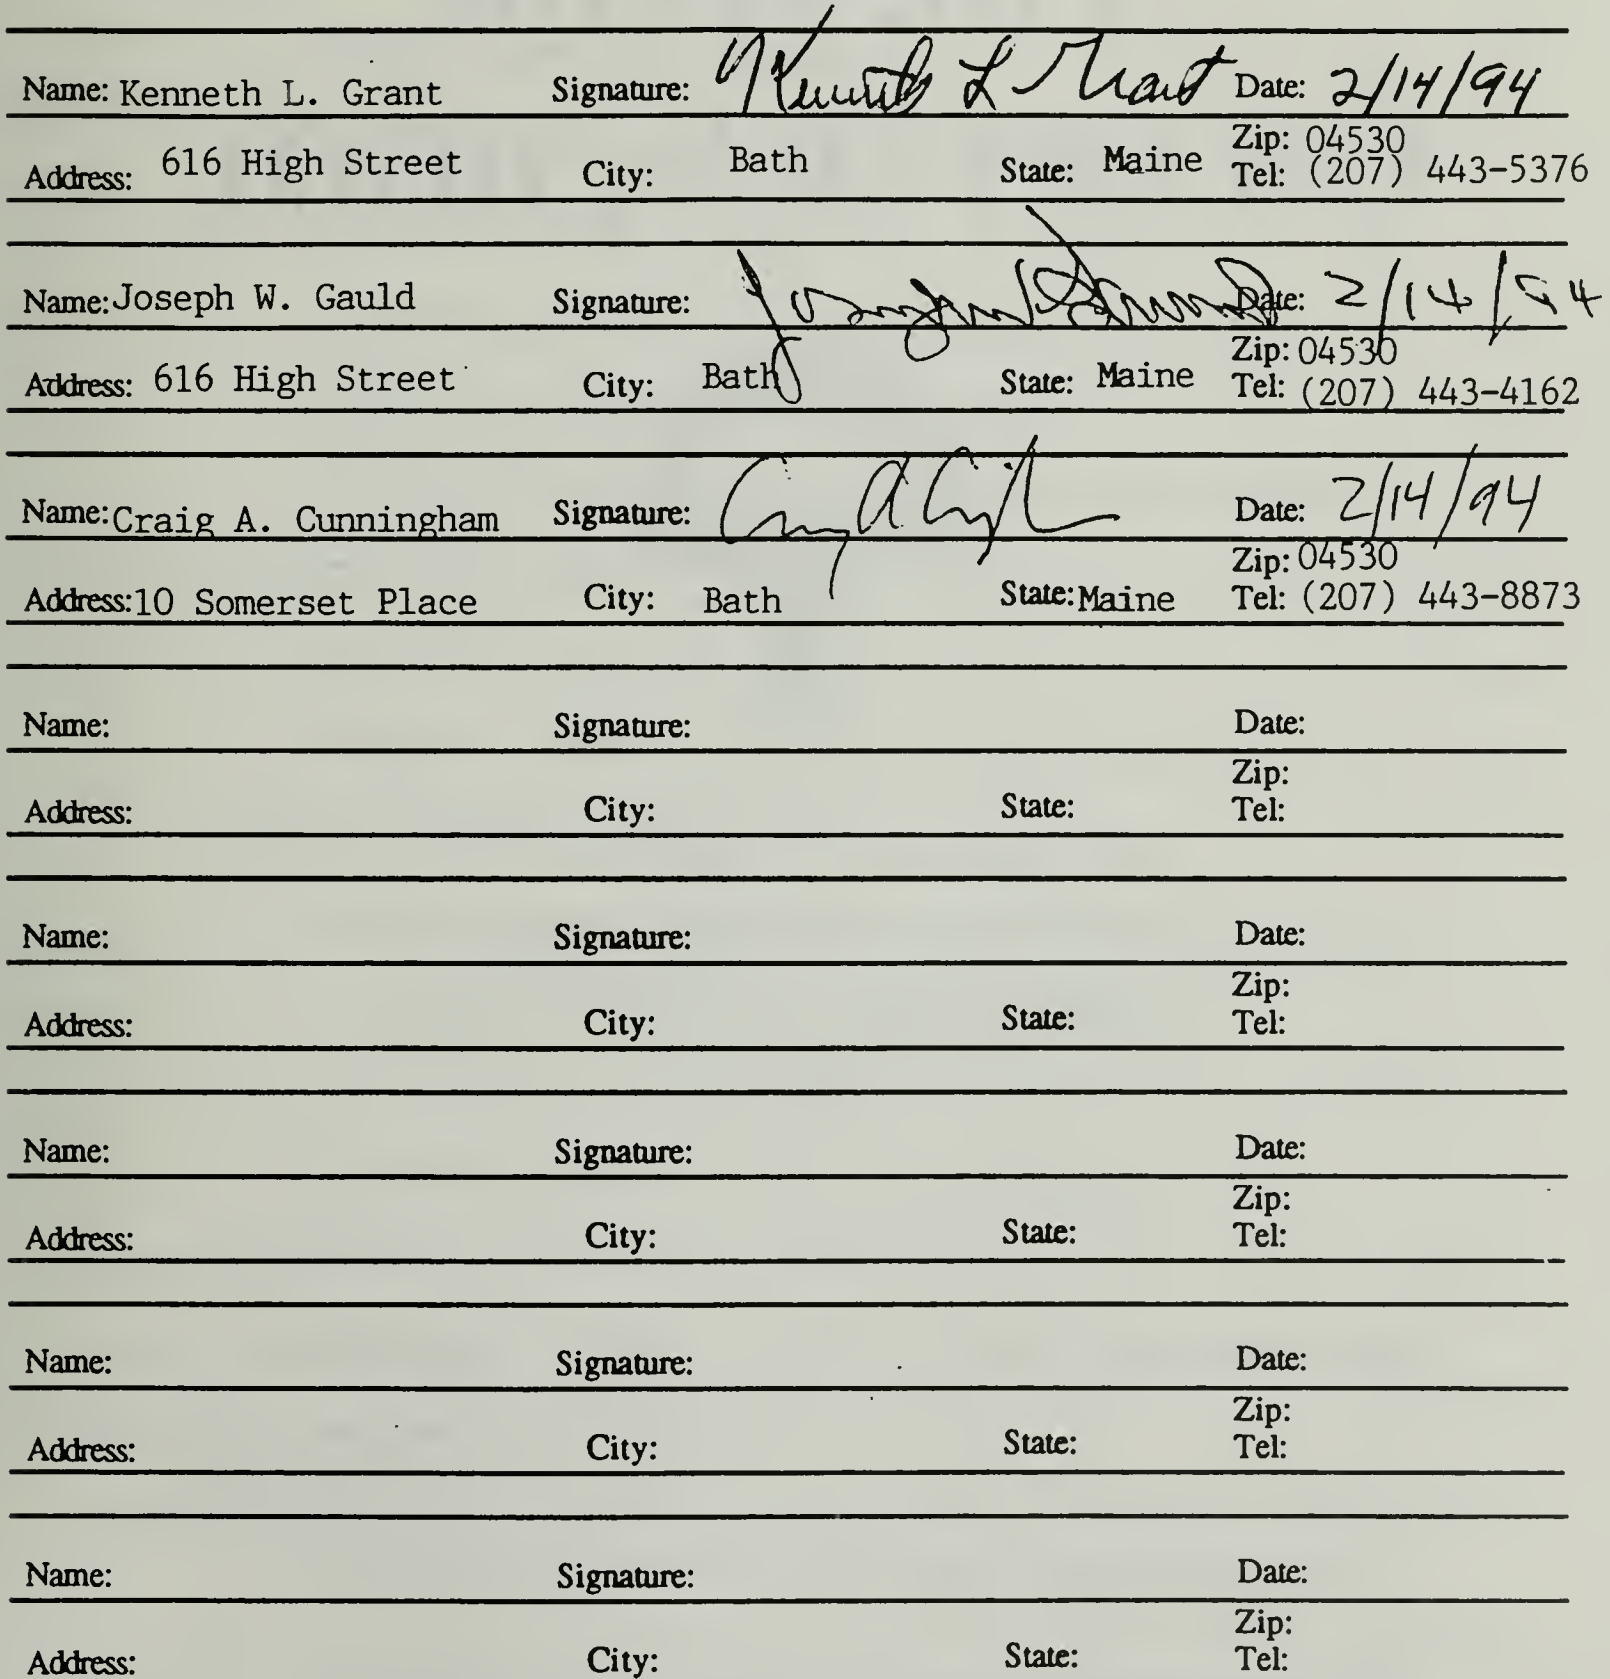 Name: Kenneth L. Grant Signature: Kenneth L Grant Date: 2/14/94
Zip: 04530
Address: 616 High Street City: Bath State: Maine Tel: (207) 443-5376
Name: Joseph W. Gauld Signature: Joseph W Gauld Date: 2/14/94
Zip: 04530
Address: 616 High Street City: Bath State: Maine Tel: (207) 443-4162
Name: Craig A. Cunningham Signature: Date: 2/14/94
Zip: 04530
Address: 10 Somerset Place City: Bath State: Maine Tel: (207) 443-8873
Name: Signature: Date:
Zip:
Address: City: State: Tel:
Name: Signature: Date:
Zip:
Address: City: State: Tel:
Name: Signature: Date:
Zip:
Address: City: State: Tel:
Name: Signature: Date:
Zip:
Address: City: State: Tel:
Name: Signature: Date:
Zip:
Address: City: State: Tel: